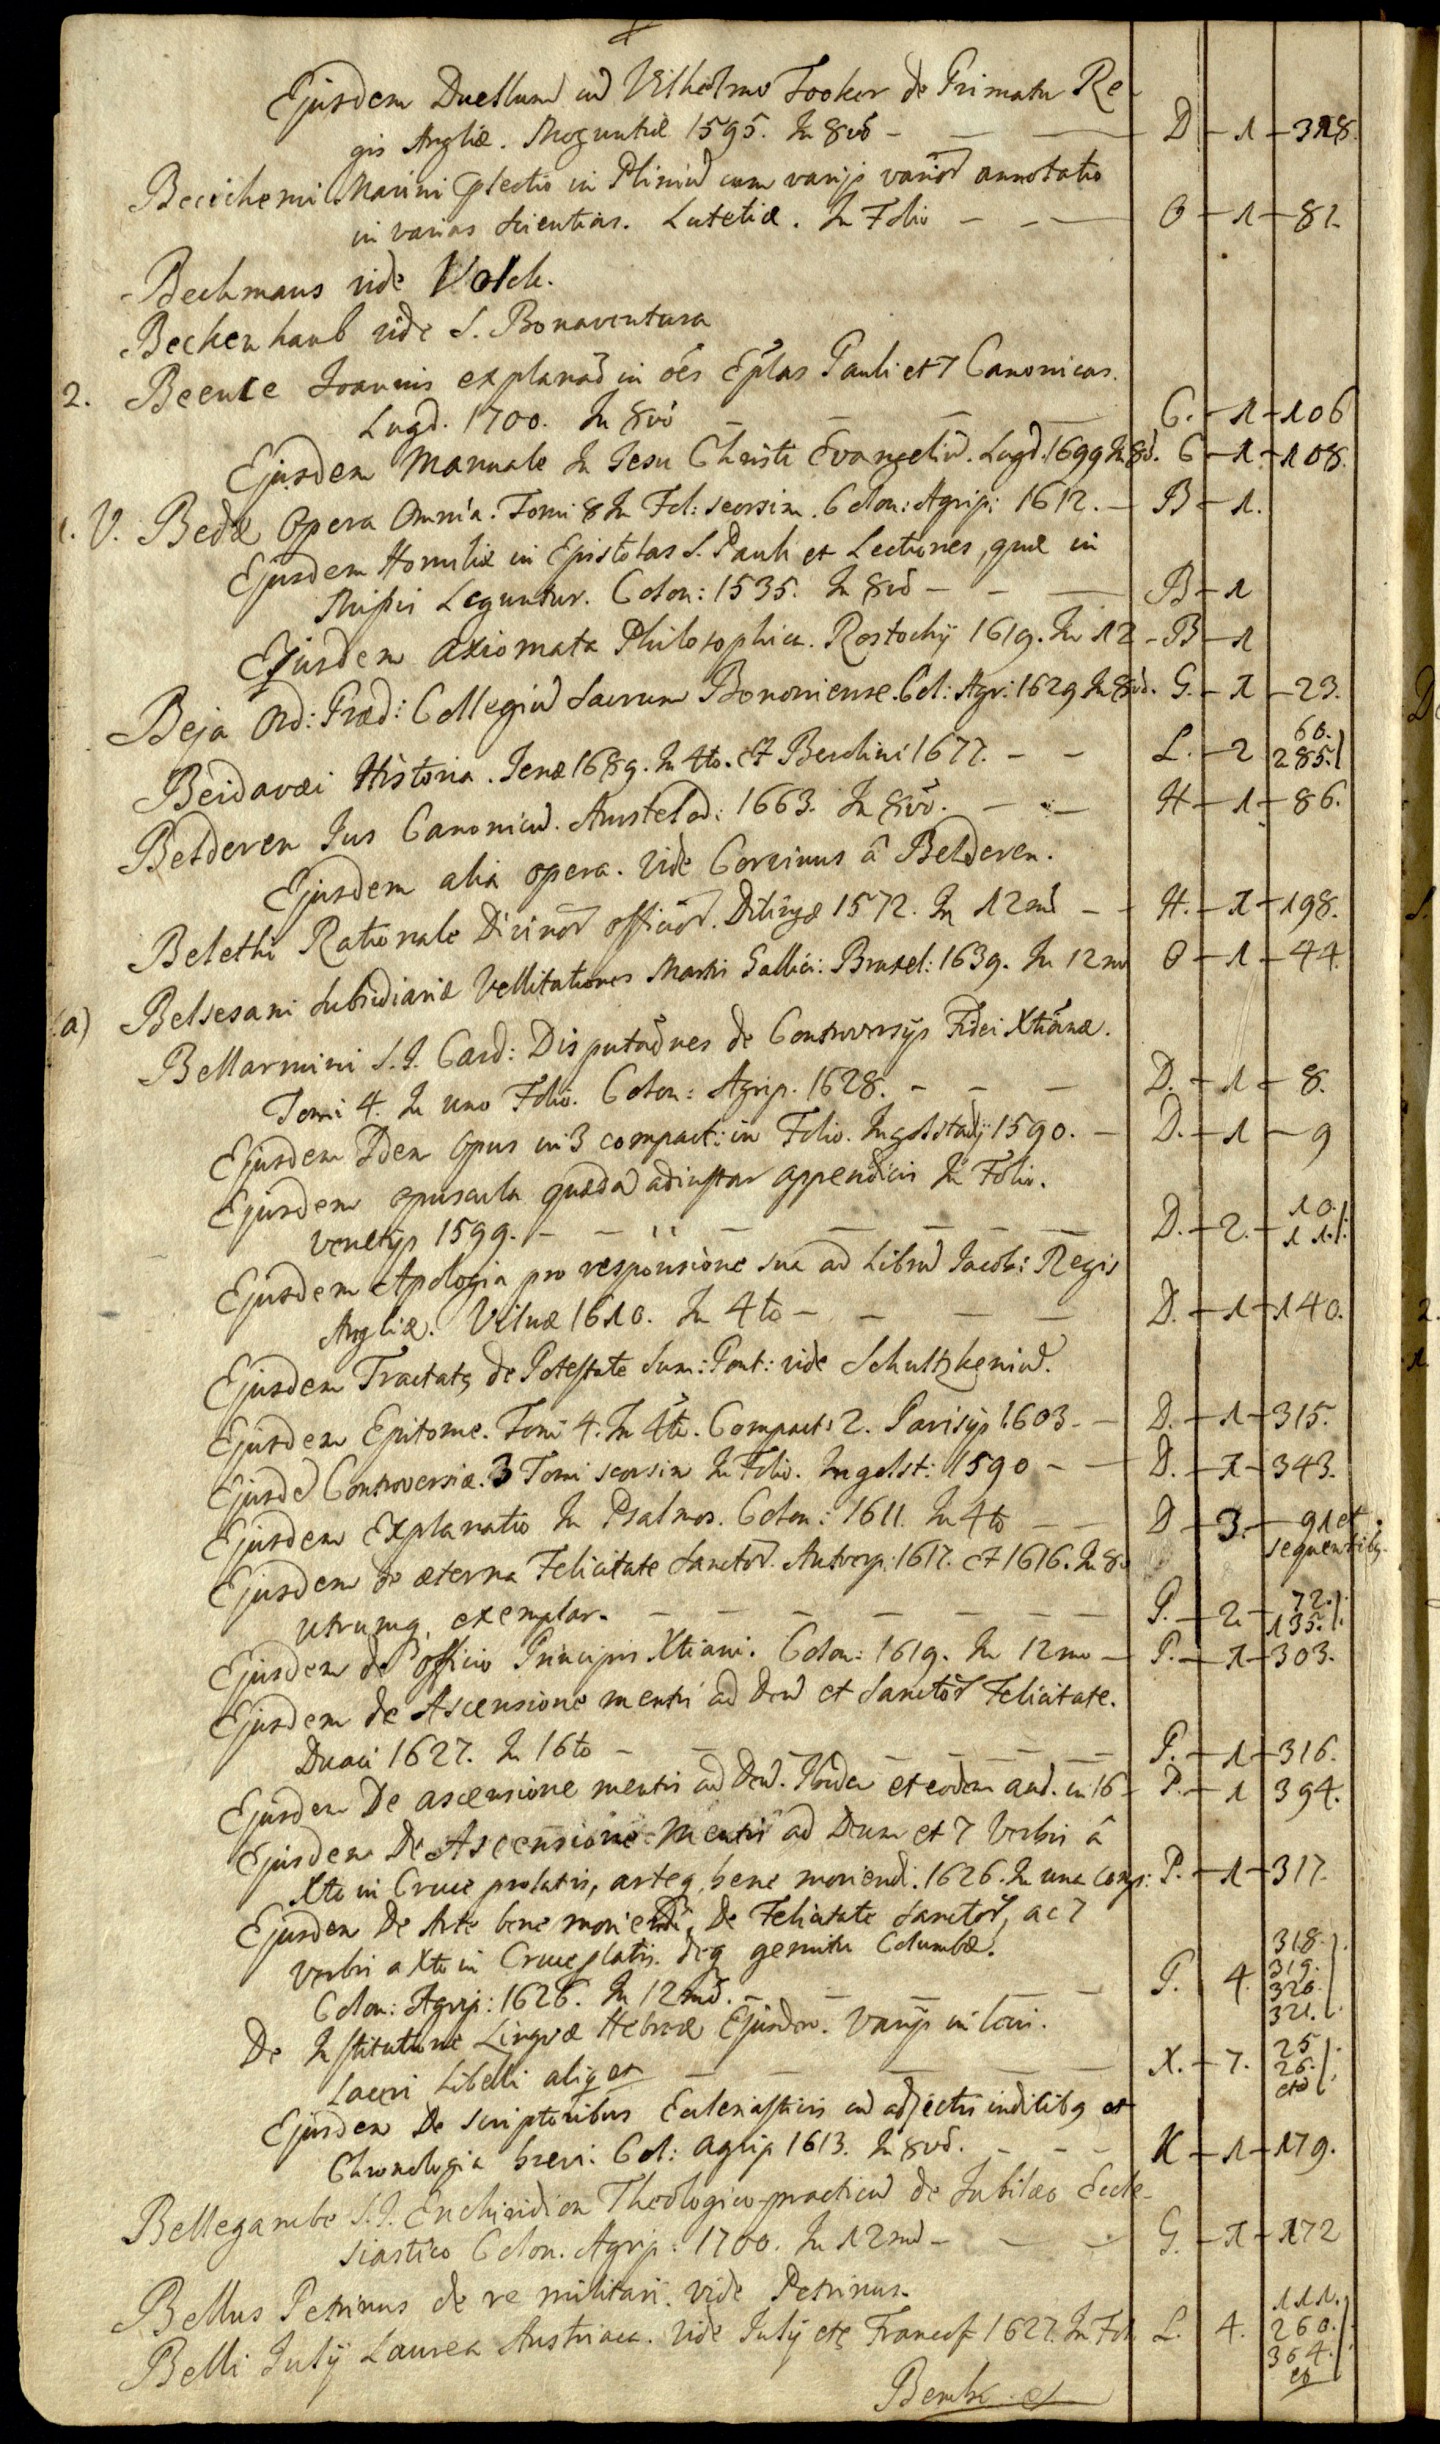 Ejusdem Duellum cū Vilhelmo Tooker de Primatu Re-
gis Angliæ. Moguntiæ 1595. In 8vo - D - 1 - 318.
Becichemi Marini plectio in Pliniū cum varijs varior annotatio
in varias scientias. Lutetiæ. In Folio - O - 1 - 82.
Bechmans vide Volck.
Beckenhaub vide S. Bonaventura
2. Beenle Joannis explanāō in ōēs Eplas Pauli et 7 Canonicas.
Lugd. 1700. In 8vo C. - 1 - 106
Ejusdem Manuale In Jesu Christi Evangeliū. Lugd. 1699 In 8vo. C - 1 - 108.
V. Bedæ Opera Omnia. Tomi 8 In Fol: seorsim. Colon: Agrip: 1612. - B - 1.
Ejusdem Homiliæ in Epistolas S. Pauli et Lectiones, quæ in
Missis Leguntur. Colon: 1535. In 8vo - B - 1
Ejusdem Axiomata Philosophica. Rostochij 1619. In 12 - B - 1
Beja Ord: Præd: Collegiū Sacrum Bononiense. Col: Agr: 1629 In 8vo. G. - 1 - 23.
Beidavæi Historia. Jenæ 1689. In 4to. et Berolini 1677. - L. - 2 60. 285.
Belderen Jus Canonicū. Amstelod: 1663. In 8vo. - H - 1 - 86.
Ejusdem alia opera. vide Corvinus â Belderen.
Belethi Rationale Divinor officior. Dilingæ 1572. In 12mo - H. - 1 - 198.
Belsesani Subsidiariæ Vellitationes Martis Gallici: Bruxel: 1639. In 12mo O - 1 - 44.
a) Bellarmini S.J. Card: Disputaōnes de Controversijs Fidei Xtianæ.
Tomi 4. In uno Folio. Colon: Agrip. 1628. - D. - 1 - 8.
Ejusdem Idem Opus in 3 compact: in Folio. Ingolstadij 1590. - D. - 1 - 9
Ejusdem opuscula quædā adinstar appendicis In Folio.
Venetijs 1599. - D. - 2. - 10. 11.
Ejusdem Apologia pro responsione sua ad Librū Jacobi Regis
Angliæ. Vilnæ 1610. In 4to - D. - 1 - 140.
Ejusdem Tractatq de Potestate Sum: Pont: vide Schultzkeniū.
Ejusdem Epitome. Tomi 4. In 4to. Compact: 2. Parisijs 1603. - D. - 1 - 315.
Ejusdē Controversiæ. 3 Tomi seorsim In Folio. Ingolst: 1590 - D. - 1 - 343.
Ejusdem Explanatio In Psalmos. Colon: 1611. In 4to - D - 3. - 91 et sequentibq.
Ejusdem de æterna Felicitate Sanctor. Antverp: 1617. et 1616. In 8vo
utrumq. exemplar. - P. - 2. - 72. 135.
Ejusdem de officio Principis Xtiani. Colon: 1619. In 12mo - P. - 1 - 303.
Ejusdem de Ascensione mentis ad Deū et Sanctor Felicitate.
Duaci 1627. In 16to - P. - 1 - 316.
Ejusdem De ascensione mentis ad Deū. Ibidem et eodem an̄o. in 16 - P. - 1 394.
Ejusdem De Ascensione Mentis ad Deum et 7 Verbis â
Xto in Cruce prolatis, arteq. bene moriendi. 1626. In una comp: P. - 1 - 317.
Ejusdem De Arte bene moriendi, De Felicitate Sanctor, ac 7
verbis a Xto in Cruce platis. deq gemitu Columbæ.
Colon: Agrip: 1626. In 12mo. - P. 4. 318. 319. 320. 321.
De Institutione Linguæ Hebreæ Ejusdem. Varijs in locis.
Laceri Libelli aliq et - X. - 7. 25 26. etc
Ejusdem De Scriptoribus Ecclesiasticis cū adjectis indicibq et
Chronologia brevi. Col: Agrip 1613. In 8vo. - K - 1 - 179.
Bellegambe S.J. Enchiridion Theologico-practicū de Jubilæo Eccle-
siastico Colon. Agrip: 1700. In 12mo - G. - 1 - 172
Bellus Petrinus de re militari. vide Petrinus.
Belli Julij Laurea Austriaca. vide Julij etc Francof 1627. In Fol L. 4. 111. 260. 364. et